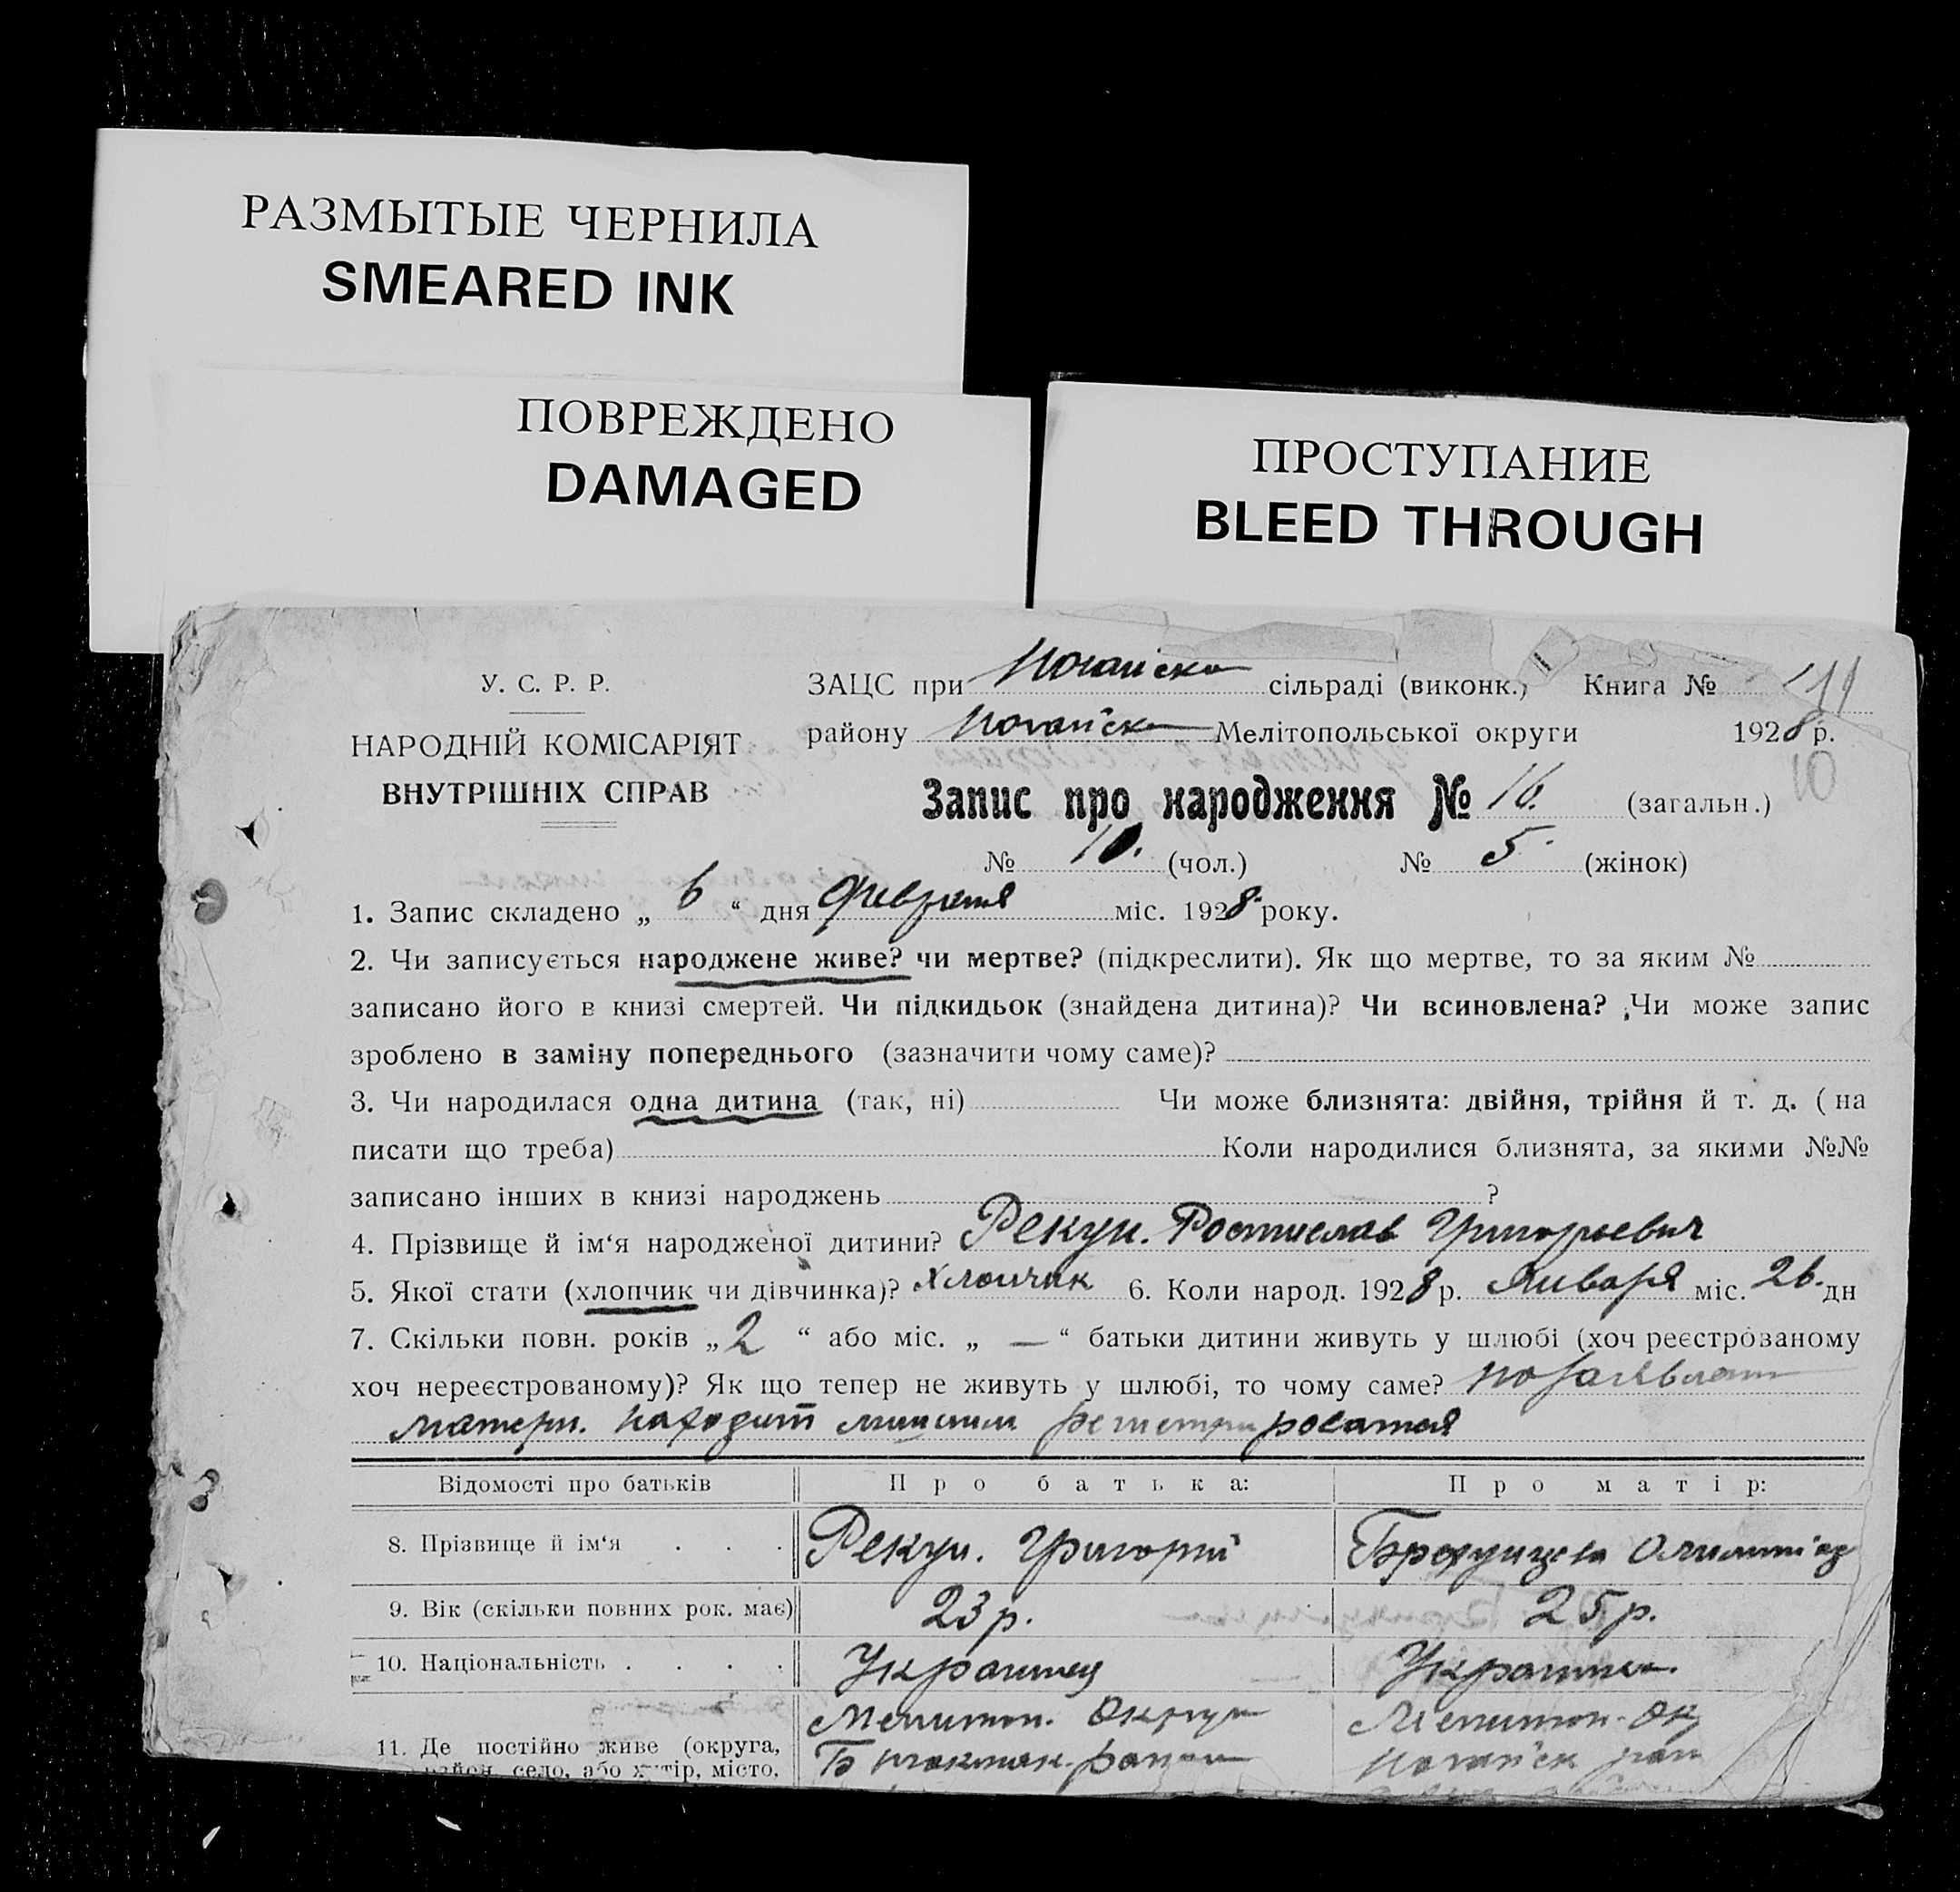 РАЗМЫТЫЕ ЧЕРНИЛА
SMEARED INK
ПОВРЕЖДЕНО
DAMAGED
ПРОСТУПАНИЕ
BLEED THROUGH
У. С. Р. Р.
НАРОДНІЙ КОМІСАРІЯТ
ВНУТРІШНІХ СПРАВ
ЗАЦС при Ногайском сільраді (виконк.) Книга №
району Ногайском Мелітопольської округи 1928 р.
10
Запис про народження № 16. (загальн.)
№ 10. (чол.) № 5. (жінок)
1. Запис складено „ 6 “ дня Февраля міс. 1928 року.
2. Чи записується народжене живе? чи мертве? (підкреслити). Як що мертве, то за яким №
записано його в книзі смертей. Чи підкидьок (знайдена дитина)? Чи всиновлена? Чи може запис
зроблено в заміну попереднього (зазначити чому саме)?
3. Чи народилася одна дитина (так, ні) Чи може близнята: двійня, трійня й т. д. ( на
писати що треба) Коли народилися близнята, за якими №№
записано інших в книзі народжень ?
4. Прізвище й ім‘я народженої дитини? Рекун. Ростислав Григорьевич
5. Якої стати (хлопчик чи дівчинка)? Хлопчик 6. Коли народ. 1928 р. Января міс. 26. дн
7. Скільки повн. років „ 2 “ або міс. „ — “ батьки дитини живуть у шлюбі (хоч реєстрованому
хоч нереєстрованому)? Як що тепер не живуть у шлюбі, то чому саме? по заявлению
матери. находит лишним регистрироваться
Відомості про батьків Про батька: Про матір:
8. Прізвище й ім‘я . . . Рекун. Григорий
9. Вік (скільки повних рок. має) 23 р. 25 р.
10. Національність . . . . Украинец Украинка.
11. Де постійно живе (округа, Мелитоп. Округа Мелитоп. Ок
район, село, або хутір, місто, Б Токмак. район Ногайск рай